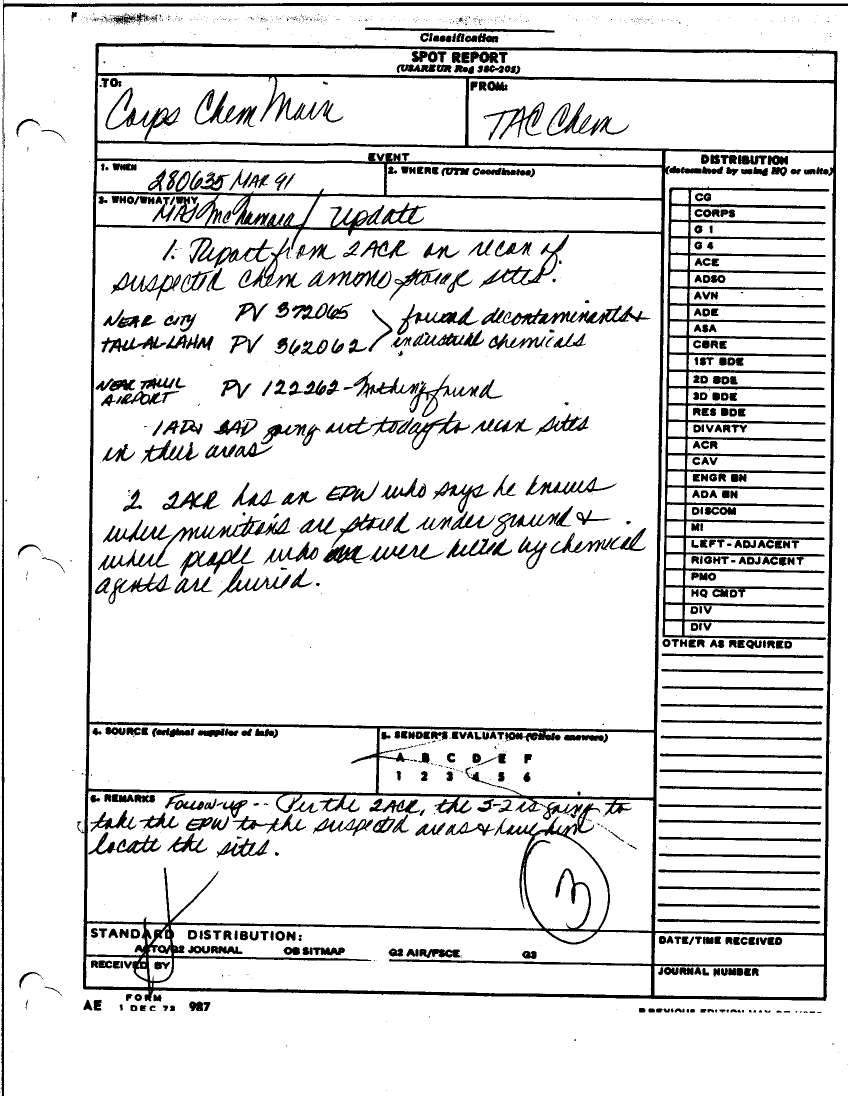 Classification
SPOT REPORT
(USAREUR Reg 380-205)
TO:
Corps Chem Main
FROM:
TAC Chem
EVENT
1. WHEN
280635 MAR 91
2. WHERE (UTM Coordinates)
3. WHO/WHAT/WHY
MAJ McNamara / Update
1. Report from 2ACR on recon of
suspected chem ammo storage sites:
NEAR CITY PV 372065 found decontaminants &
TALL-AL-LAHM PV 362062 industrial chemicals
NEAR TALLIL PV 122262 - Nothing found
AIRPORT
1AD & 3AD going out today to recon sites
in their areas
2. 2ACR has an EPW who says he knows
where munitions are stored under ground &
where people who were killed by chemical
agents are buried.
4. SOURCE (original supplier of info)
5. SENDER'S EVALUATION (Circle answers)
A B C D E F
1 2 3 4 5 6
6. REMARKS Follow-up -- Per the 2ACR, the S-2 is going to
take the EPW to the suspected areas & have him
locate the sites.
3
STANDARD DISTRIBUTION:
ACTO/G2 JOURNAL OB SITMAP G2 AIR/FSCE G3
RECEIVED BY
DISTRIBUTION
(determined by using HQ or units)
CG
CORPS
G 1
G 4
ACE
ADSO
AVN
ADE
ASA
CBRE
1ST BDE
2D BDE
3D BDE
RES BDE
DIVARTY
ACR
CAV
ENGR BN
ADA BN
DISCOM
MI
LEFT-ADJACENT
RIGHT-ADJACENT
PMO
HQ CMDT
DIV
DIV
OTHER AS REQUIRED
DATE/TIME RECEIVED
JOURNAL NUMBER
AE FORM 987
1 DEC 73
PREVIOUS EDITION MAY BE USED